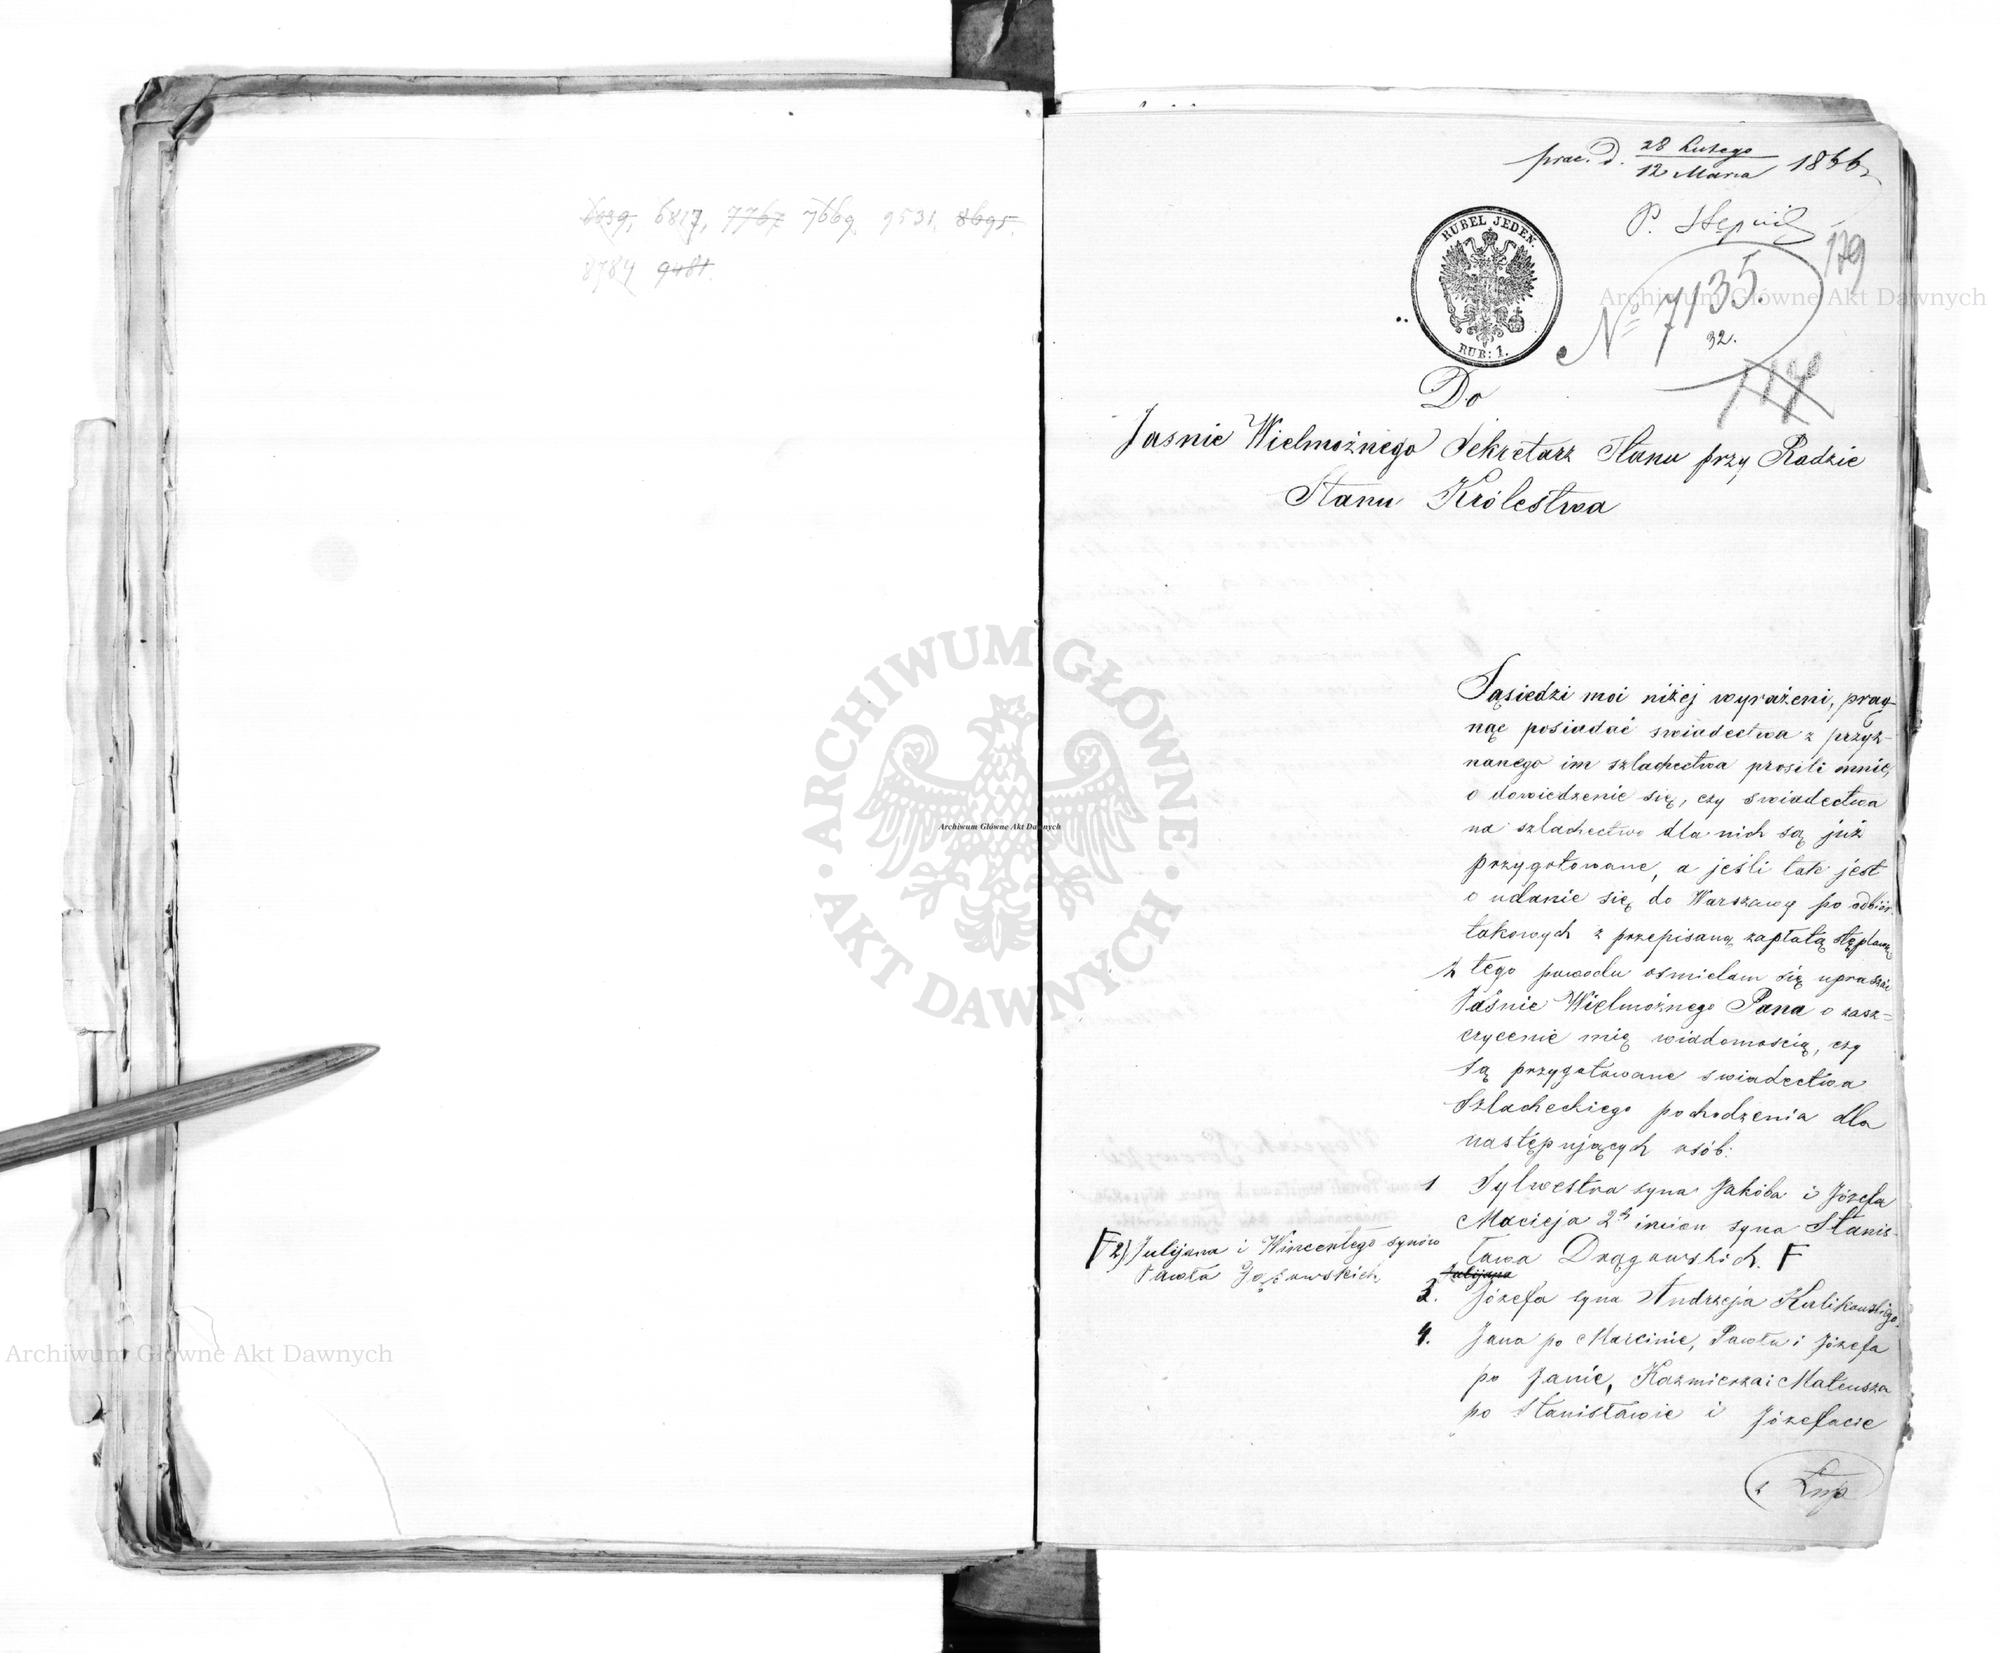 6039, 6817, 7767 7669 9531, 8695.
8784 9481.
prae. d. 28 Lutego
12 Marca 1866
P. Stępni
179
RUBEL JEDEN.
RUB: 1.
Nº 7135.
32.
Do
Jasnie Wielmożnego Sekretarz Stanu przy Radzie
Stanu Królestwa
Sąsiedzi moi niżej wyrażeni, prag-
nąc posiadać swiadectwa z przyz-
nanego im szlachectwa prosili mnie,
o dowiedzenie się, czy swiadectwa
na szlachectwo dla nich są już
przygotowane, a jeśli tak jest
o udanie się do Warszawy po odbiór
takowych z przepisaną zapłatą stęplową
z tego powodu osmielam się upraszać
Jaśnie Wielmożnego Pana o zasz=
czycenie mię wiadomoscią, czy
są przygotowane swiadectwa
Szlacheckiego pochodzenia dla
następujących osób:
1 Sylwestra syna Jakóba i Józefa
Macieja 2ch imion syna Stanis-
ława Drągowskich. F
F 2) Julijana i Wincentego synów
Pawła Gąsowskich,
Julijana
3. Józefa syna Andrzeja Kulikowskiego.
4. Jana po Marcinie, Pawła i Józefa
po Janie, Kazmierza i Mateusza
po Stanisławie i Józefacie
Archiwum Główne Akt Dawnych
Archiwum Główne Akt Dawnych
Archiwum Główne Akt Dawnych
ARCHIWUM GŁÓWNE
AKT DAWNYCH